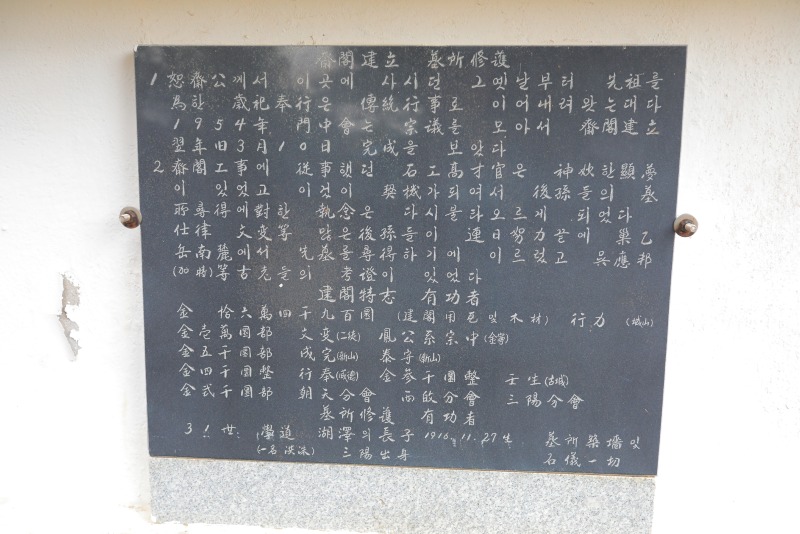 齋閣建立 墓所修護
1 恕齋公께서 이곳에 사시던 그 옛날부터 先祖를
爲한 歲祀奉行은 傳統行事로 이어내려 왔는대다
1954年 門中會는 宗議를 모아서 齋閣建立
翌年 旧3月10日 完成을 보았다
2 齋閣工事에 從事했던 石工高才官은 神妙한 顯夢
이 있엇고 이것이 契가되여서 後孫들의 墓
所尋得對한 執念은 다시을라 오르게 되었다
에文 孫들이 連日努力끝에 巢乙
岳南麓에서 先墓를 尋得하기에 이르렀고 吳應邦
(加特)等 古 들의 考證이 있었다
建閣特志有功者
金 恰六萬四千九百圓 (建閣用 및 木材) 行力 (城山)
金壱萬圓部 文変(二徒) 鳳公系宗中(金寧)
金五千圓部 成完(新山) 泰守(新山)
金四千圓整 行奉(咸德) 金參千圓整 壬生(古城)
金貳千圓部 朝天分會 分會 三陽分會
墓所修護有功者
31世 學道 湖澤의 長子 1916年11.27生 墓所築墻및
(一名 洪 ) 三陽出身 石儀一切